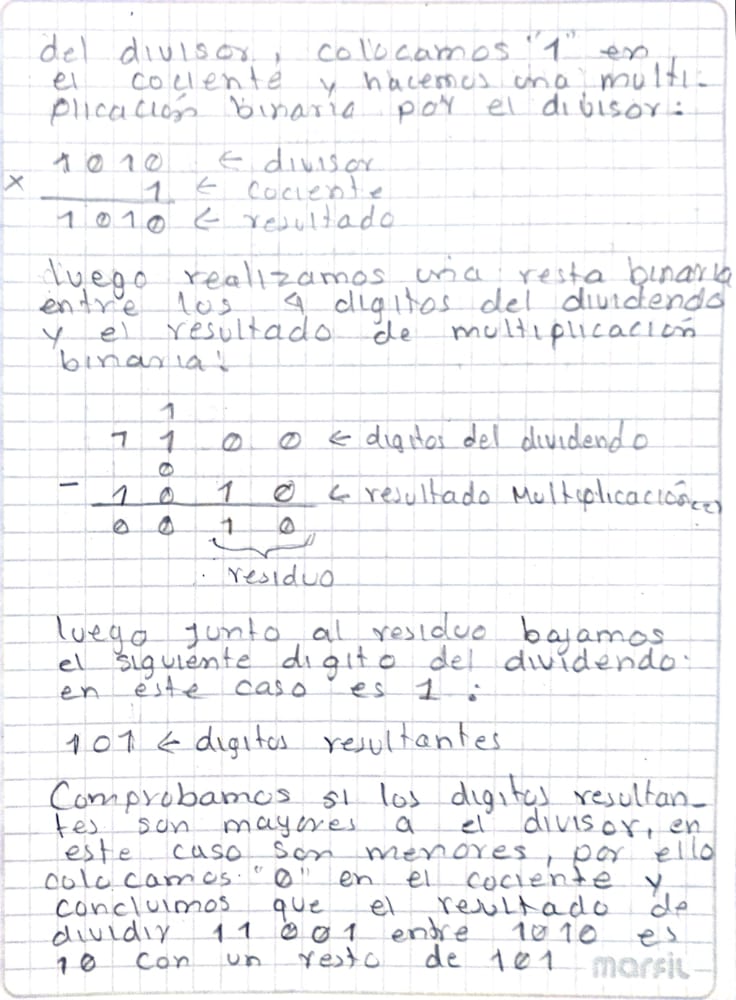 del divisor, colocamos "1" en
el cociente y hacemos una multi-
plicación binaria por el divisor:
1010 ← divisor
× 1 ← cociente
1010 ← resultado
luego realizamos una resta binaria
entre los 4 digitos del dividendo
y el resultado de multiplicación
binaria:
1
1 1 0 0 ← digitos del dividendo
0
- 1 0 1 0 ← resultado Multiplicación
0 0 1 0
residuo
luego junto al residuo bajamos
el siguiente digito del dividendo.
en este caso es 1 :
101 ← digitos resultantes
Comprobamos si los digitos resultan-
tes son mayores a el divisor, en
este caso son menores, por ello
colocamos "0" en el cociente y
concluimos que el resultado de
dividir 11001 entre 1010 es
10 con un resto de 101
marfil